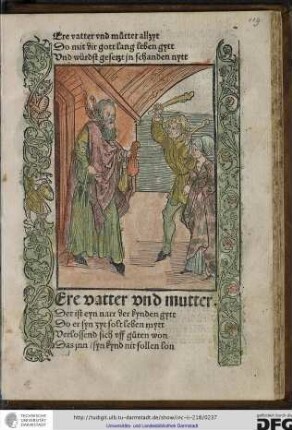 Ere vatter vnd mütter allzyt
Do mit dir gott lang leben gytt
Vnd würdst gesetzt jn schanden nytt
Ere vatter vnd mutter.
Der ist eyn narr der kynden gytt
Do er syn zyt solt leben mytt
Verlossend sich vff güten won
Das jnn syn kynd nit sollen lon
TECHNISCHE
UNIVERSITÄT
DARMSTADT
http://tudigit.ulb.tu-darmstadt.de/show/inc-ii-218/0237
Universitäts- und Landesbibliothek Darmstadt
DFG